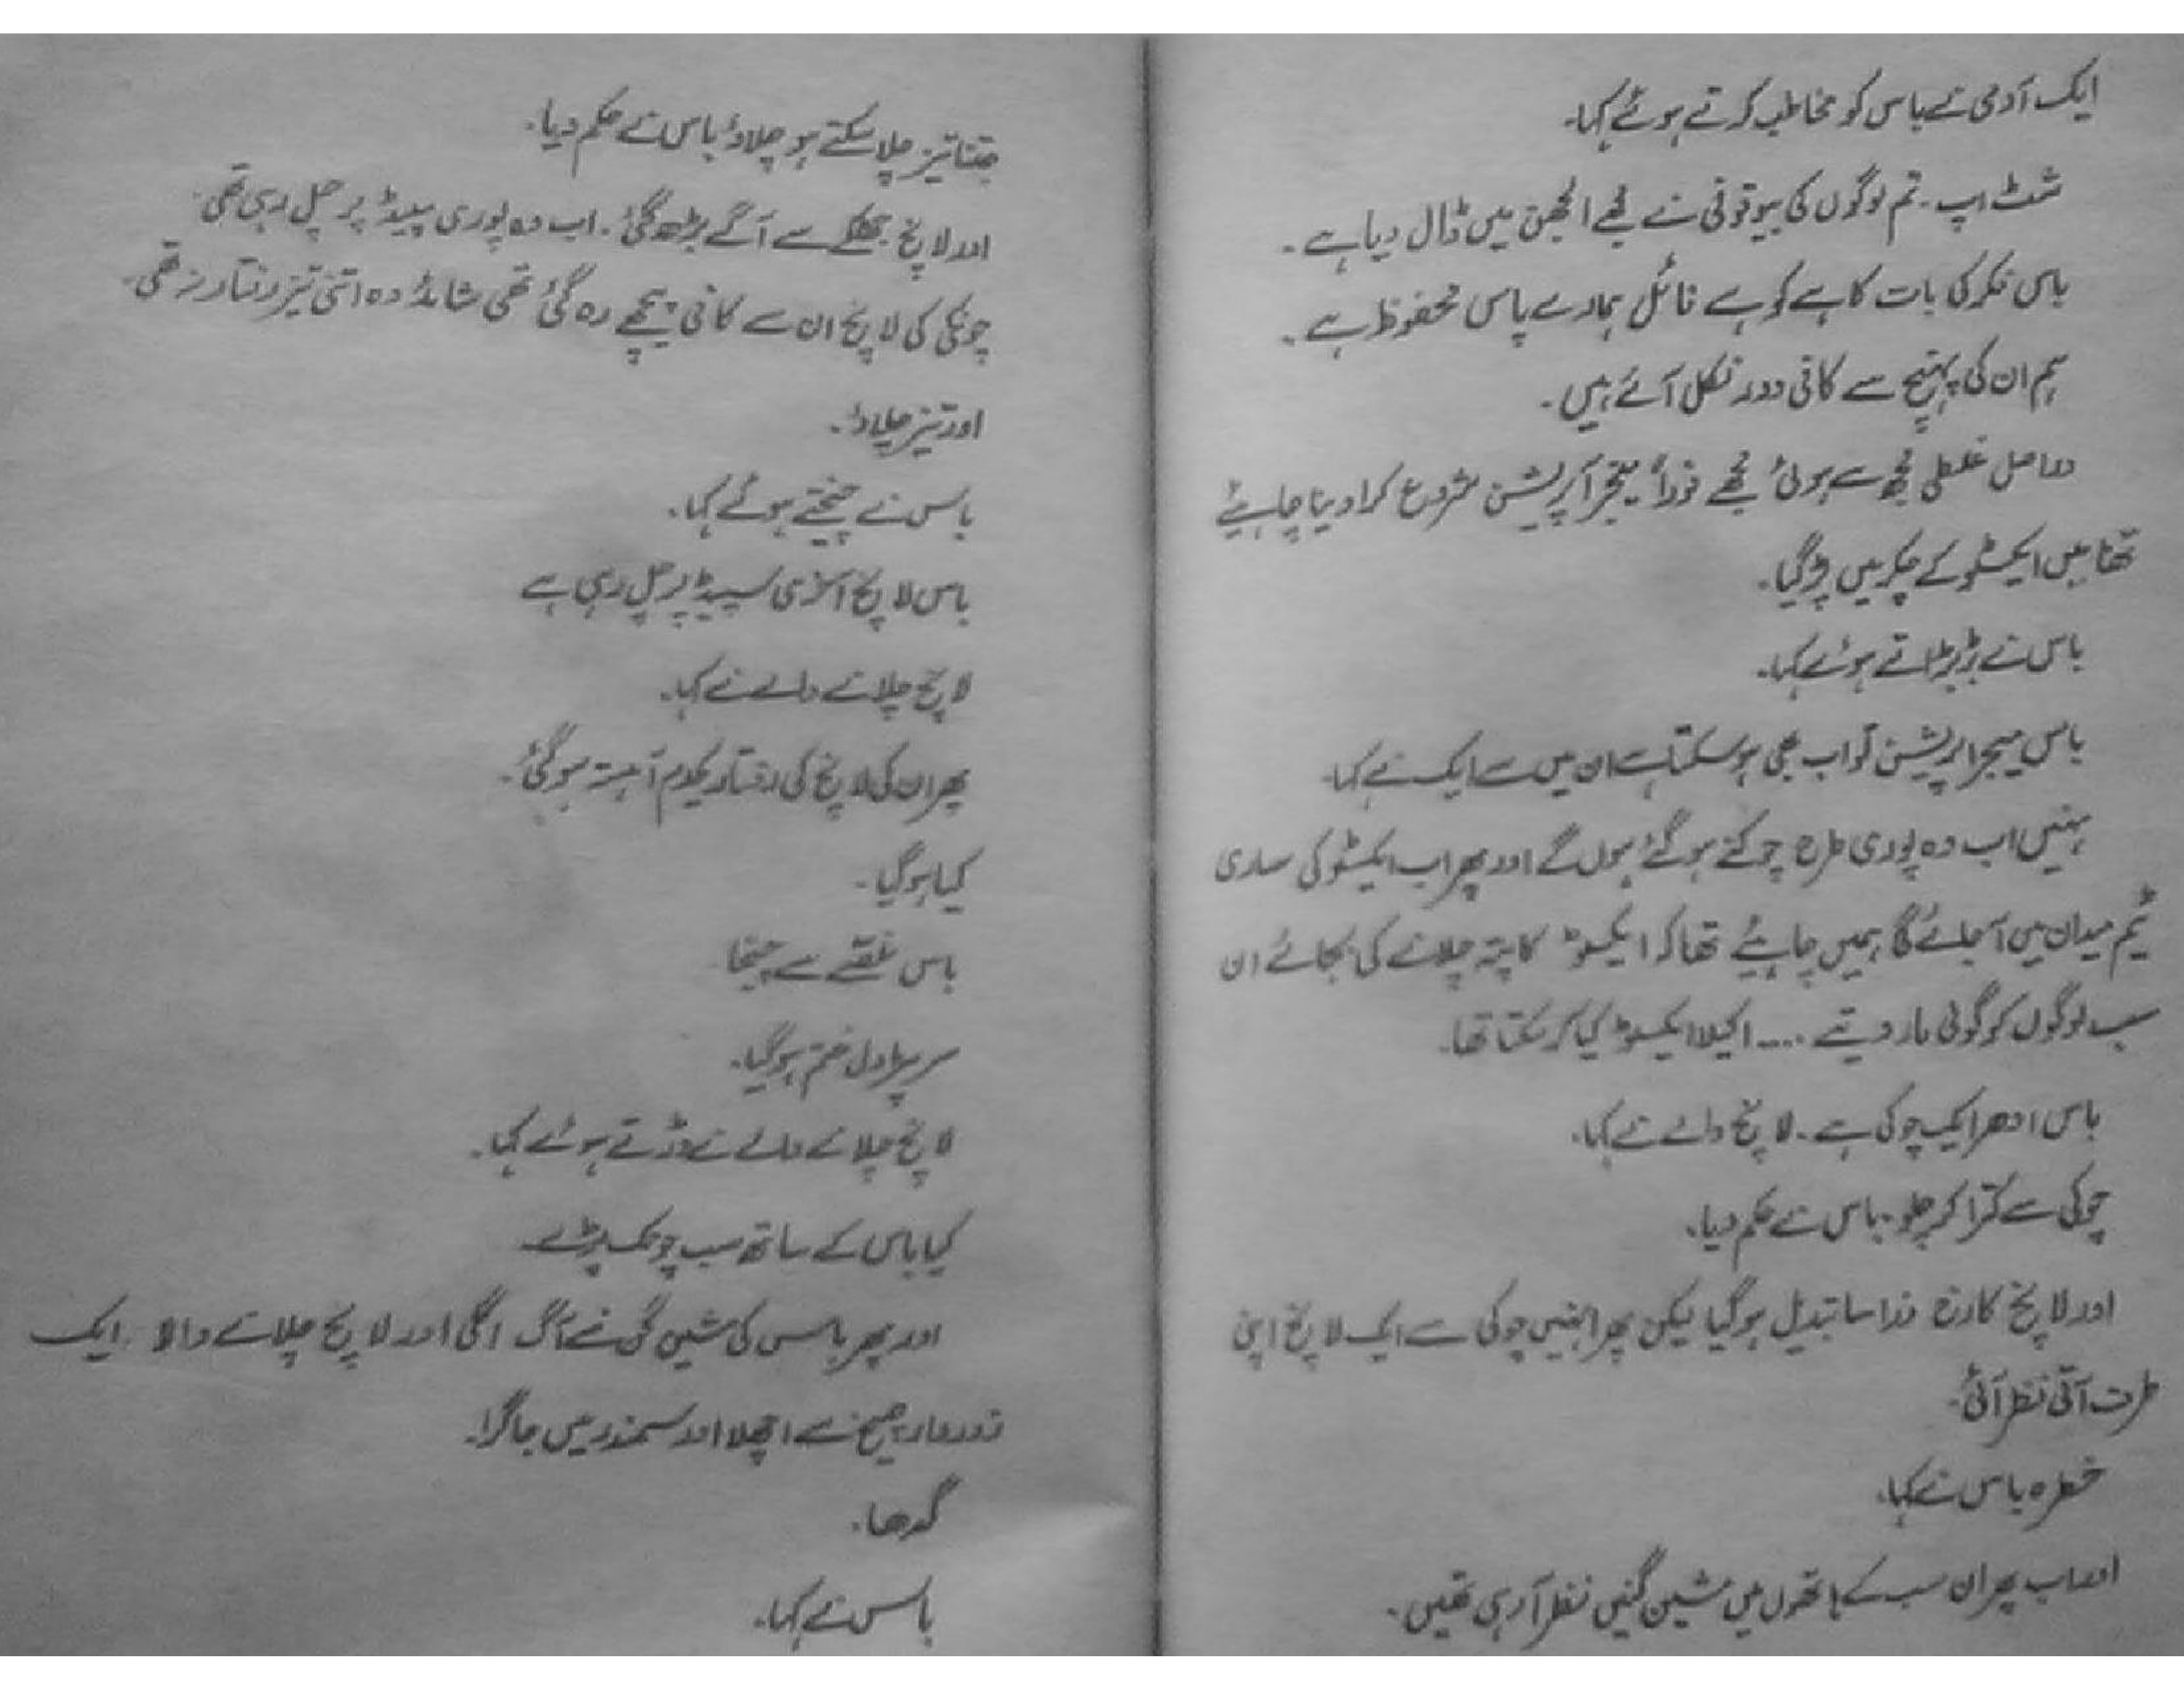 ایک آدمی نے باس کو مخاطب کرتے ہوئے کہا.
شٹ اپ. تم لوگوں کی بیوقوفی نے مجھے الجھن میں ڈال دیا ہے.
باس فکر کی بات کا ہے کو ہے فائل ہمارے پاس محفوظ ہے.
ہم ان کی پہنچ سے کافی دور نکل آئے ہیں.
دراصل غلطی مجھ سے ہوئی مجھے فوراً میجر آپریشن شروع کرا دینا چاہیئے
تھا میں ایکسٹو کے چکر میں پڑ گیا.
باس نے بڑبڑاتے ہوئے کہا.
باس میجر اپریشن تو اب بھی ہو سکتا ہے ان میں سے ایک نے کہا.
نہیں اب وہ پوری طرح چوکنے ہو گئے ہوں گے اور پھر اب ایکسٹو کی ساری
ٹیم میدان میں آ جائے گا ہمیں چاہیئے تھا کہ ایکسٹو کا پتہ چلانے کی بجائے ان
سب لوگوں کو گولی مار دیتے .... اکیلا ایکسٹو کیا کر سکتا تھا.
باس ادھر ایک چوکی ہے. لانچ والے نے کہا.
چوکی سے کترا کر چلو. باس نے حکم دیا.
اور لانچ کا رخ ذرا سا تبدیل ہو گیا لیکن پھر انہیں چوکی سے ایک لانچ اپنی
طرف آتی نظر آئی.
خطرہ باس نے کہا.
اور اب پھر ان سب کے ہاتھوں میں مشین گنیں نظر آ رہی تھیں.
جتنا تیز چلا سکتے ہو چلاؤ باس نے حکم دیا.
اور لانچ جھٹکے سے آگے بڑھ گئی. اب وہ پوری سپیڈ پر چل رہی تھی.
چونکی کی لانچ ان سے کافی پیچھے رہ گئی تھی شائد وہ اتنی تیز رفتار نہ تھی.
اور تیز چلاؤ.
باس نے چیختے ہوئے کہا.
باس لانچ آخری سپیڈ پر چل رہی ہے
لانچ چلانے والے نے کہا.
پھر ان کی لانچ کی رفتار یکدم آہستہ ہو گئی.
کیا ہو گیا.
باس غصے سے چیخا
سر پٹرول ختم ہو گیا.
لانچ چلانے والے نے ڈرتے ہوئے کہا.
کیا باس کے ساتھ سب چونک پڑے
اور پھر باس کی مشین گن نے آگ اگلی اور لانچ چلانے والا ایک
زوردار چیخ سے اچھلا اور سمندر میں جا گرا.
گدھا.
باس نے کہا.